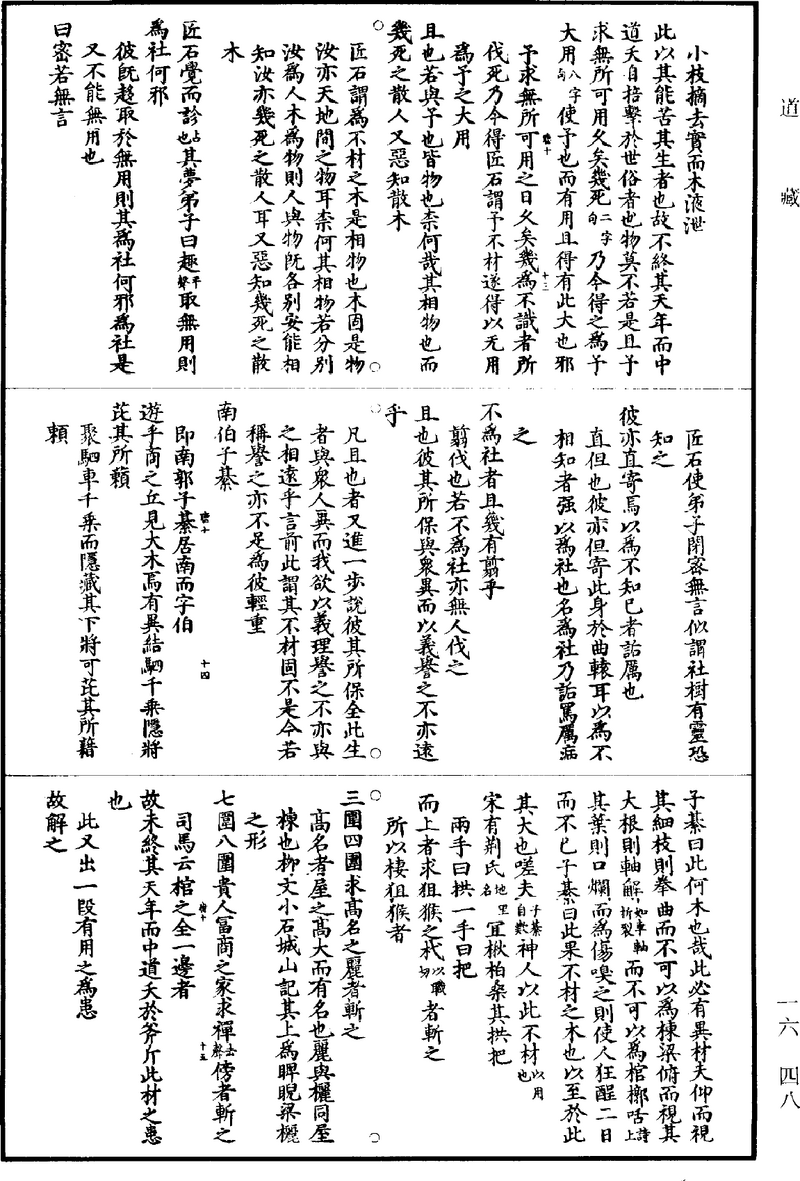 道藏
一六　四八
小枝摘去實而木液泄
此以其能苦其生者也故不終其天年而中
道夭自掊擊於世俗者也物莫不若是且予
求無所可用久矣幾死二字句乃今得之爲予
大用八字句使予也而有用且得有此大也邪
予求無所可用之日久矣幾爲不識者所
伐死乃今得匠石謂予不材遂得以无用
爲予之大用
且也若與予也皆物也柰何哉其相物也而
幾死之散人又惡知散木
匠石謂爲不材之木是相物也木固是物
汝亦天地間之物耳柰何其相物若分別
汝爲人木爲物則人與物旣各別安能相
知汝亦幾死之散人耳又惡知幾死之散
木
匠石覺而診占也其夢弟子曰趣平聲取無用則
爲社何邪
彼旣趍取於無用則其爲社何邪爲社是
又不能無用也
曰密若無言
匠石使弟子閉密無言似謂社樹有靈恐
知之
彼亦直寄焉以爲不知已者詬厲也
直但也彼亦但寄此身於曲轅耳以爲不
相知者强以爲社也名爲社乃詬罵厲病
之
不爲社者且幾有翦乎
翦伐也若不爲社亦無人伐之
且也彼其所保與衆異而以義譽之不亦遠
乎
凡且也者又進一步說彼其所保全此生
者與衆人異而我欲以義理譽之不亦與
之相遠乎言前此謂其不材固不是今若
稱譽之亦不足爲彼輕重
南伯子綦
即南郭子綦居南而字伯
遊乎商之丘見大木焉有異結駟千乘隱將
芘其所藾
聚駟車千乘而隱藏其下將可芘其所藉
賴
子綦曰此何木也哉此必有異材夫仰而視
其細枝則拳曲而不可以爲棟梁俯而視其
大根則軸解如車軸折裂而不可以爲棺槨咶上詩
其葉則口爛而爲傷嗅之則使人狂酲二日
而不已子綦曰此果不材之木也以至於此
其大也嗟夫子綦自歎神人以此不材以用也
宋有荆氏地名里宜楸柏桑其拱把
兩手曰拱一手曰把
而上者求狙猴之杙以職切者斬之
所以棲狙猴者
三圍四圍求髙名之麗者斬之
髙名者屋之髙大而有名也麗與欐同屋
棟也柳文小石城山記其上爲睥睨梁欐
之形
七圍八圍貴人富商之家求樿去聲傍者斬之
司馬云棺之全一邊者
故未終其天年而中道夭於斧斤此材之患
也
此又出一段有用之爲患
故解之